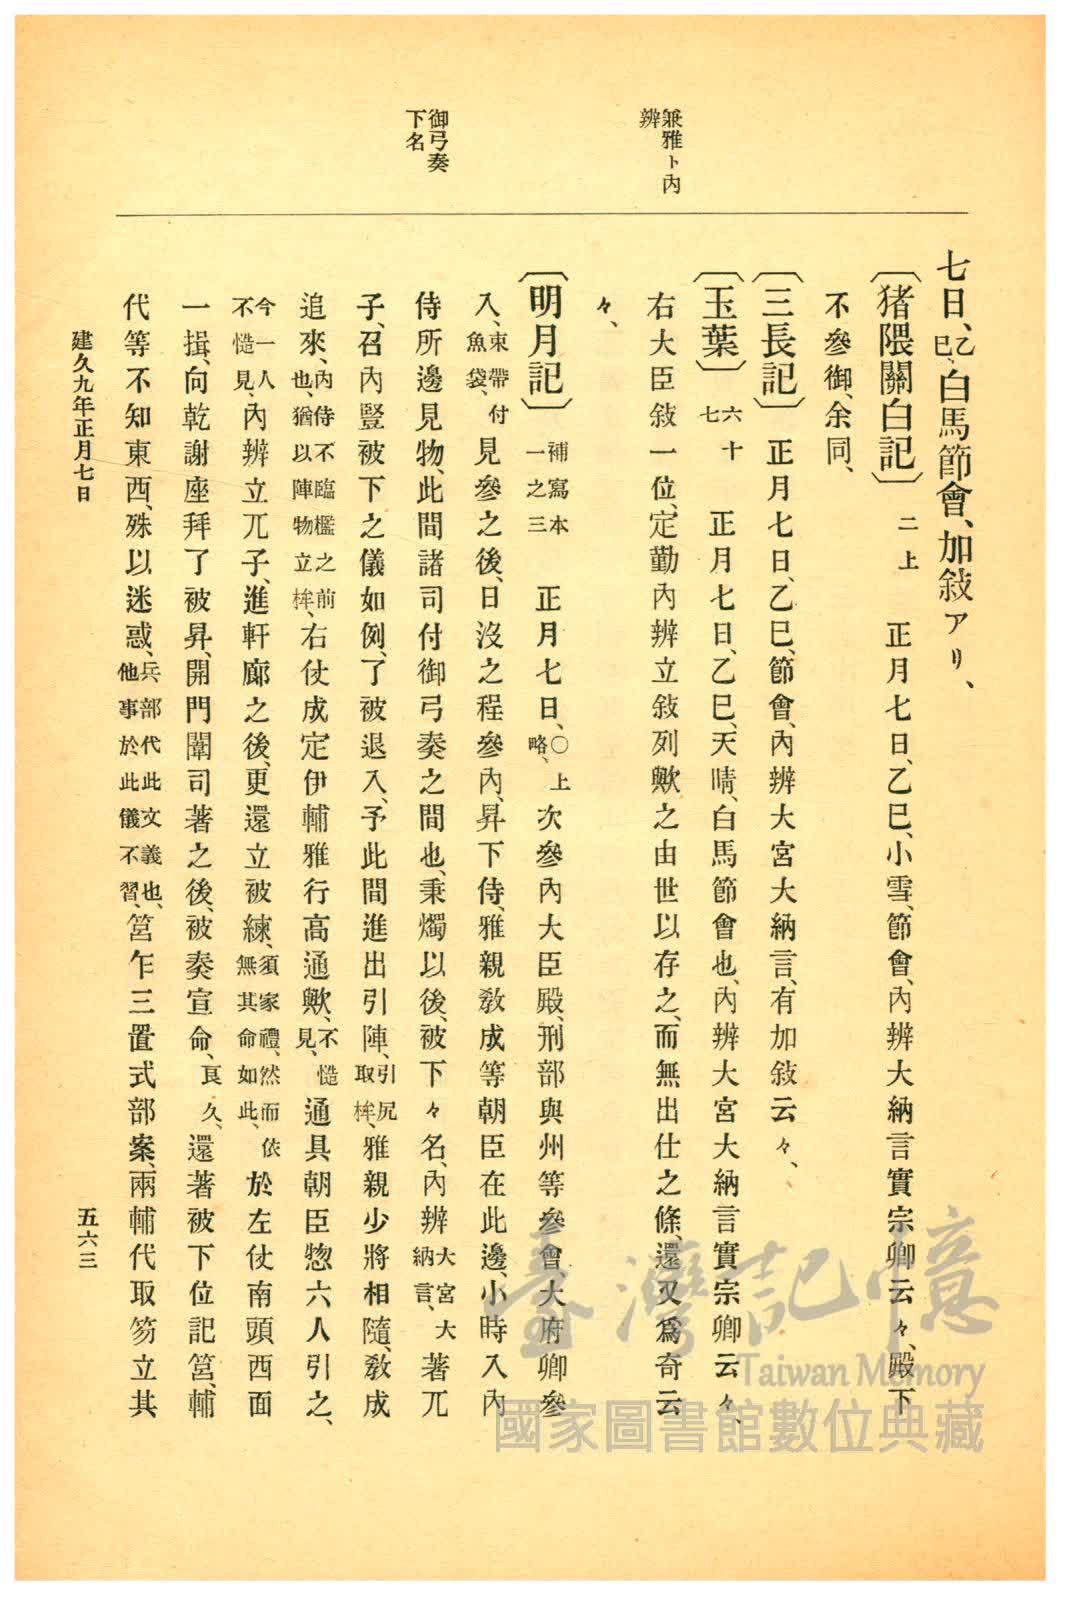 兼雅ト內
辨
御弓奏
下名
七日、乙巳、白馬節會、加敍アリ、
〔猪隈關白記〕二上 正月七日、乙巳、小雪、節會、內辨大納言實宗卿云々、殿下
不參御、余同、
〔三長記〕正月七日、乙巳、節會、內辨大宮大納言、有加敍云々、
〔玉葉〕六十七 正月七日、乙巳、天晴、白馬節會也、內辨大宮大納言實宗卿云々、
右大臣敍一位、定勤內辨立敍列歟之由世以存之、而無出仕之條、還又爲奇云
々、
〔明月記〕補寫本一之三 正月七日、〇上略、次參內大臣殿、刑部與州等參會大府卿參
入、束帶付魚袋、見參之後、日沒之程參內、昇下侍、雅親敎成等朝臣在此邊、小時入內
侍所邊見物、此間諸司付御弓奏之間也、秉燭以後、被下々名、內辨大宮大納言、著兀
子、召內豎被下之儀如例、了被退入、予此間進出引陣、引尻取桙、雅親少將相隨、敎成
追來、內侍不臨檻之前也、猶以陣物立桙、右仗成定伊輔雅行高通歟、不慥見、通具朝臣惣六人引之、
今一人不慥見、內辨立兀子、進軒廊之後、更還立被練、須家禮、然而依無其命如此、於左仗南頭西面
一揖、向乾謝座拜了被昇、開門闈司著之後、被奏宣命、良久、還著被下位記筥、輔
代等不知東西、殊以迷惑、兵部代此文義也、他事於此儀不習、筥乍三置式部案、兩輔代取笏立其
建久九年正月七日
五六三
臺灣記憶
Taiwan Memory
國家圖書館數位典藏